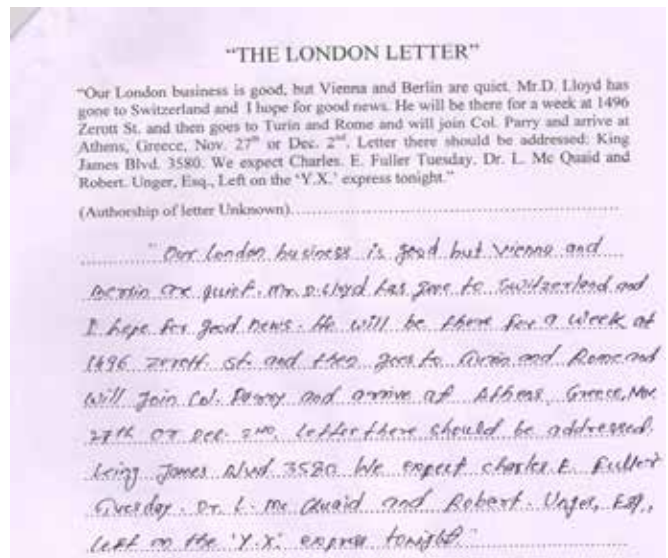 "THE LONDON LETTER"
"Our London business is good, but Vienna and Berlin are quiet. Mr.D. Lloyd has
gone to Switzerland and I hope for good news. He will be there for a week at 1496
Zerott St. and then goes to Turin and Rome and will join Col. Parry and arrive at
Athens, Greece, Nov. 27th or Dec. 2nd. Letter there should be addressed: King
James Blvd. 3580. We expect Charles. E. Fuller Tuesday. Dr. L. Mc Quaid and
Robert. Unger, Esq., Left on the 'Y.X.' express tonight."
(Authorship of letter Unknown)
"Our London business is good but Vienna and
Berlin are quiet. Mr. D. Lloyd has gone to Switzerland and
I hope for good news. He will be there for a week at
1496 Zerott. St. and then goes to Turin and Rome and
will Join Col. Parry and arrive at Athens, Greece, Nov.
27th or Dec. 2nd. Letter there should be addressed.
King James Blvd 3580 We expect Charles E. Fuller
Tuesday. Dr. L. Mc Quaid and Robert. Unger, Esq.,
left on the 'Y.X.' express tonight."